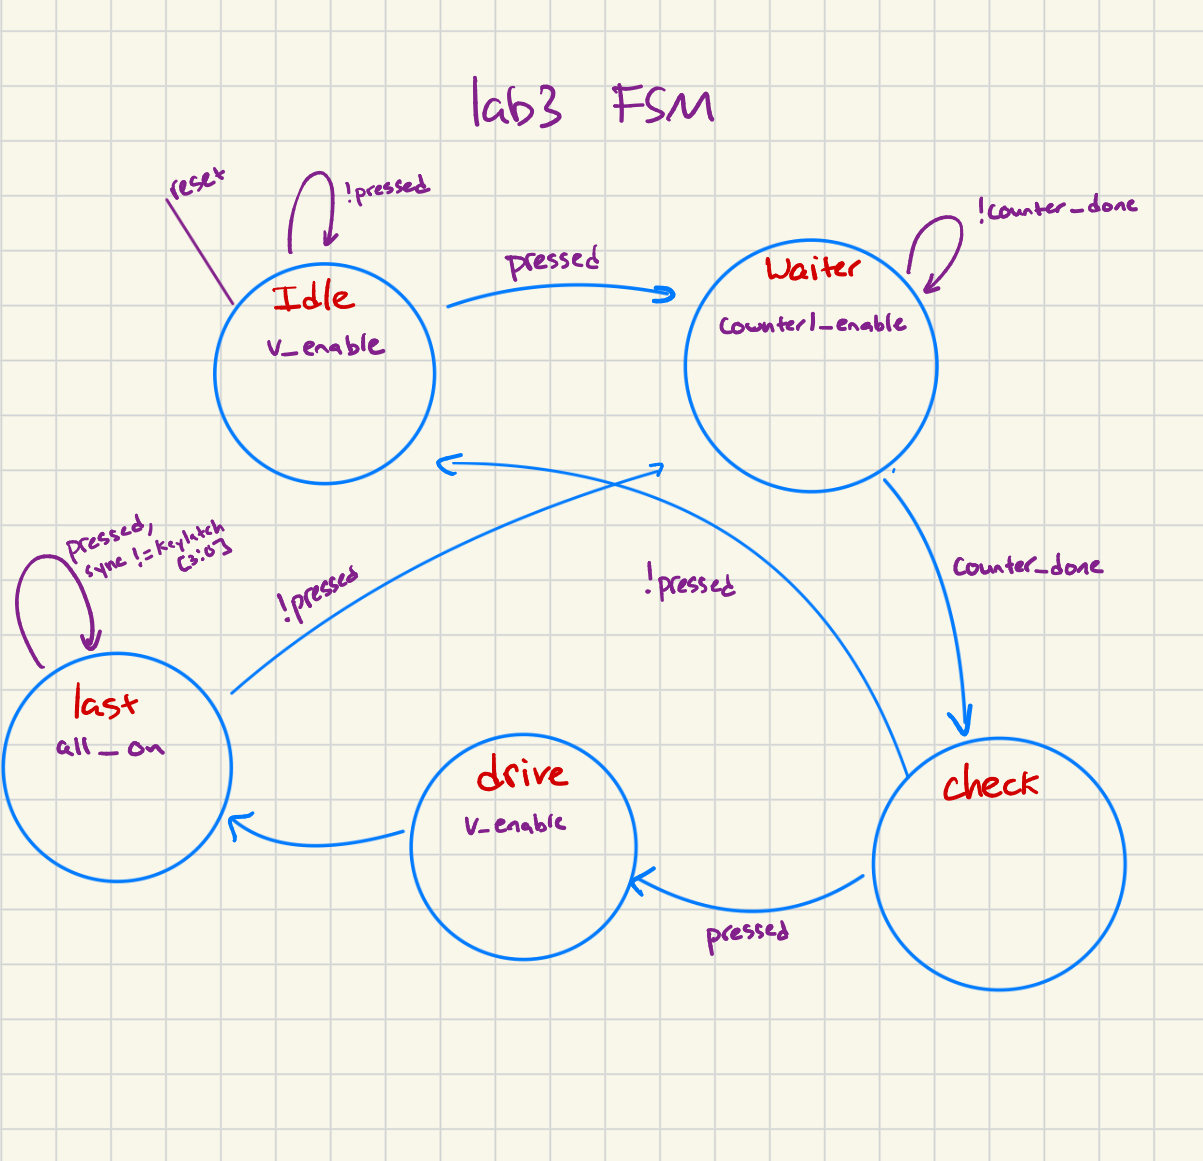 lab3 FSM
reset
!pressed
Idle
v_enable
pressed
!counter_done
Waiter
counter1_enable
pressed,
sync != keylatch
[3:0]
!pressed
!pressed
counter_done
last
all_on
drive
v_enable
check
pressed